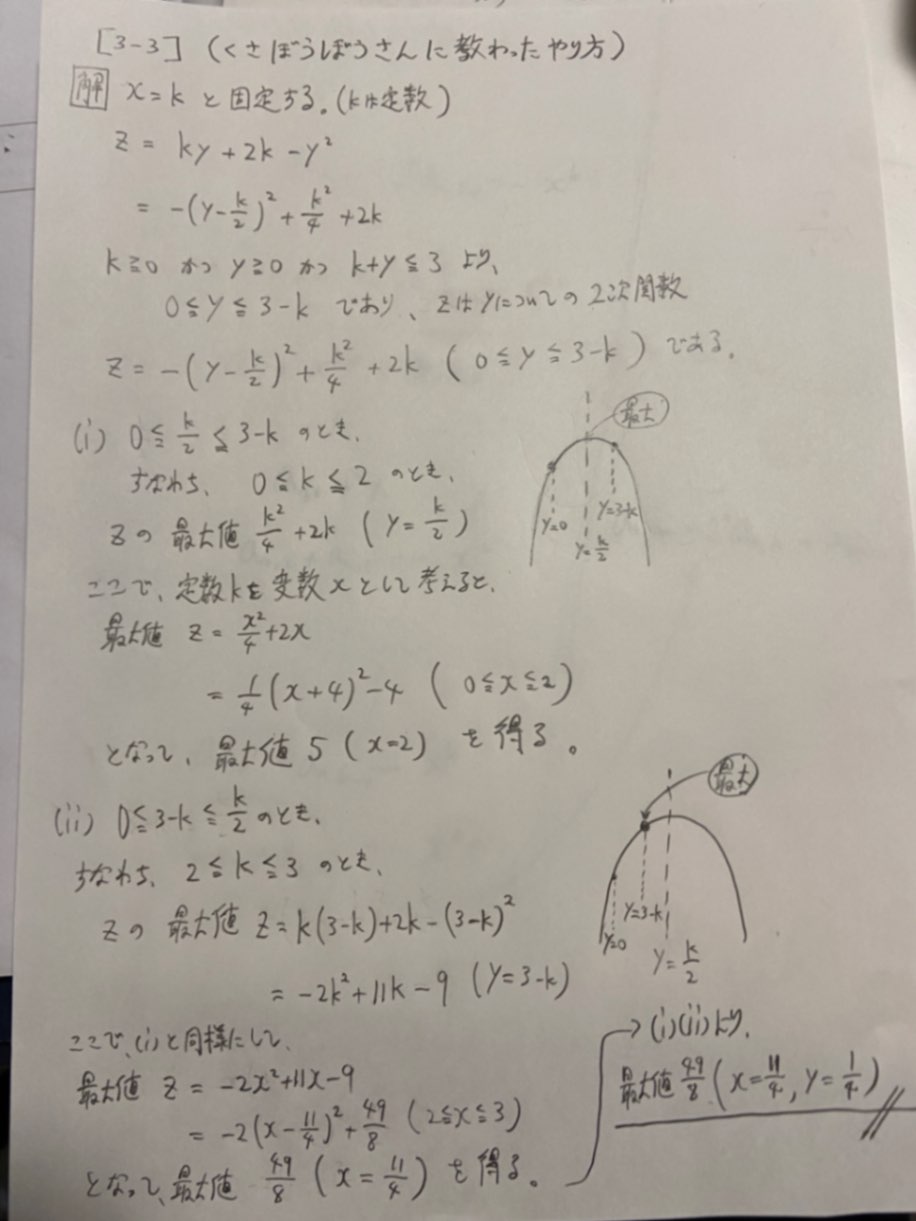 [3-3] (くさぼうぼうさんに教わったやり方)
解 x=k と固定する。(kは定数)
z = ky+2k-y²
= -(y-k/2)²+k²/4+2k
k≧0 かつ y≧0 かつ k+y≦3 より、
0≦y≦3-k であり、zはyについての2次関数
z=-(y-k/2)²+k²/4+2k (0≦y≦3-k) である。
(i) 0≦k/2≦3-k のとき、
すなわち、0≦k≦2 のとき、
zの最大値 k²/4+2k (y=k/2)
最大
y=0
y=k/2
y=3-k
ここで、定数kを変数xとして考えると、
最大値 z=x²/4+2x
=1/4(x+4)²-4 (0≦x≦2)
となって、最大値5(x=2)を得る。
(ii) 0≦3-k≦k/2のとき、
すなわち、2≦k≦3のとき、
zの最大値 z=k(3-k)+2k-(3-k)²
=-2k²+11k-9 (y=3-k)
最大
y=0
y=3-k
y=k/2
ここで、(i)と同様にして、
最大値 z=-2x²+11x-9
=-2(x-11/4)²+49/8 (2≦x≦3)
となって、最大値 49/8 (x=11/4) を得る。
→(i)(ii)より、
最大値49/8(x=11/4, y=1/4)